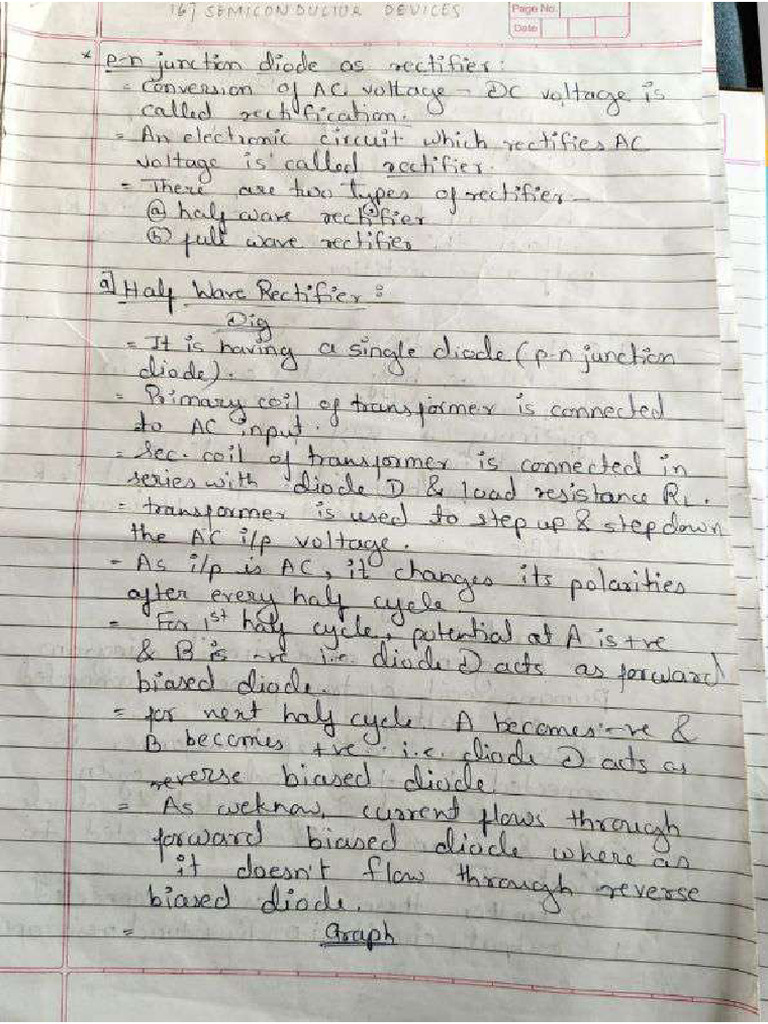 16] SEMICONDUCTOR DEVICES
Page No.
Date
* p-n junction diode as rectifier:
= Conversion of AC voltage - DC voltage is
called rectification.
= An electronic circuit which rectifies AC
voltage is called rectifier.
= There are two types of rectifier -
(a) half wave rectifier
(b) full wave rectifier
a] Half Wave Rectifier :
Dig
= It is having a single diode (p-n junction
diode).
= Primary coil of transformer is connected
to AC input.
= Sec. coil of transformer is connected in
series with diode D & load resistance RL.
= transformer is used to step up & step down
the AC i/p voltage.
= As i/p is AC, it changes its polarities
after every half cycle
= For 1st half cycle, potential at A is +ve
& B is -ve i.e. diode D acts as forward
biased diode.
= for next half cycle A becomes -ve &
B becomes +ve i.e. diode D acts as
reverse biased diode.
= As weknow, current flows through
forward biased diode where as
it doesn't flow through reverse
biased diode.
= Graph